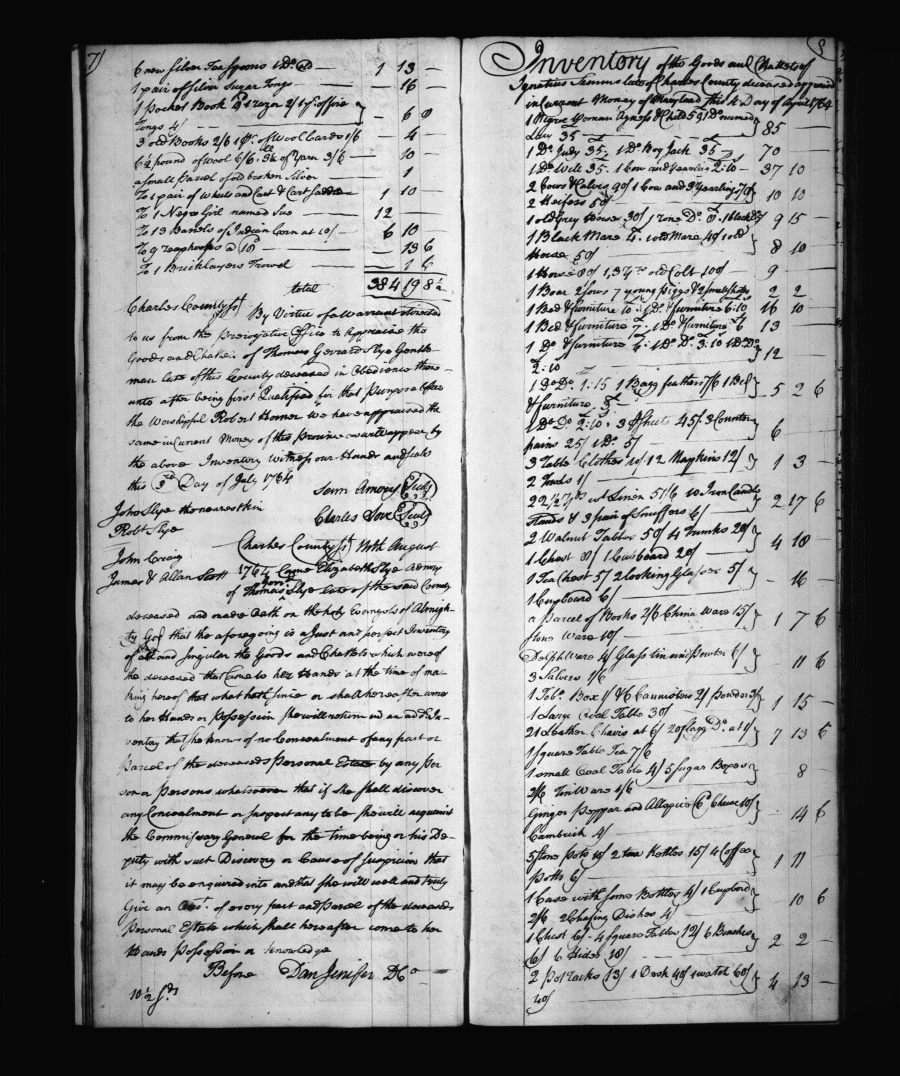 7
6 new Silver Teaspoons 1 Do. old — 1 13 —
1 pair of Silver Sugar Tongs — 16 —
1 Pocket Book 1 razor 2/
Tongs 4/ — 6 8
3 old Books 2/6 1 pr. of Wool Cards 1/6 — 4 —
6½ pound of Wool 6/6. of Yarn 3/6 — 10 —
a small Parcel of old broken Silver — 1
To 1 pair of Wheels and Cart & Cart Saddle 1 10 —
To 1 Negro Girl named Sue 12
To 13 Barrels of Indian Corn at 10/ 6 10 —
To 9 reaphooks @ 18d — 13 6
To 1 Bricklayers Trowel — 1 6
total 384 19 8½
Charles County Sst. By Virtue of a Warrant directed
to us from the Prerogative Office to Appraise the
Goods and Chattels of Thomas Gerrard Slye Gentle-
man late of this County deceased in Obedience there-
unto after being first Qualified for that Purpose before
the Worshipful Robert Horner We have appraised the
same in Current Money of this Province as will appear by
the above Inventory Witness our Hands and Seals
this 3d Day of July 1764
Sam Amery (Seal)
John Slye the nearest kin
Charles Love (Seal)
Robt. Slye
John Craig
Charles County Sst. 10th August
James & Allan Scott
1764 Came Elizabeth Slye Admrx
of Thomas Gerrd. Slye late of the said County
deceased and made Oath on the holy Evangels of Almigh-
ty God that the aforegoing is a Just and perfect Inventory
of all and Singular the Goods and Chattels which were of
the deceased that Came to her Hands at the time of ma-
king hereof that what hath since or shall hereafter come
to her Hands or Possession she will return in an add. In-
ventory that she knows of no Concealment of any part or
Parcel of the deceaseds Personal Estate by any Per-
son or Persons whatsoever that if she shall discover
any Concealment or suspect any to be she will acquaint
the Commissary General for the time being or his De-
puty with such Discovery or Cause of Suspicion that
it may be enquired into and that she will well and truly
Give an Acct. of every part and Parcel of the deceaseds
Personal Estate which shall hereafter come to her
Hands Possession or knowledge
Before Dan Jenifer
10½ Sds
8
Inventory of the Goods and Chattels of
Ignatius Semmes late of Charles County deceased appraised
in Current Money of Maryland this 4 Day of April 1764
1 Negro Woman Agness & Child £50 1 Do. named
35 — 85 —
1 Do. Judy 35, 1 Do. Boy Jack 35 — 70 —
1 Do. Will 35. 1 Cow and yearling 2:10 — 37 10
2 Cows & Calves 90/ 1 Cow and
2 Heifers 50/ 10 10
1 old Grey Horse 30/ 1 rone Do. 9 15 —
1 Black Mare 4. 1 old Mare 40/ 1 old
Horse 50/ 8 10
1 Horse 80/ 1, 3 yr. old Colt 100/ — 9 —
1 Boar 2 Sows 7 young Piggs & 2 small shoats 2 2
1 Bed & furniture 10. 1 Do. & furniture 6:10 16 10
1 Bed & furniture 7. 1 Do. & furniture 6 13
1 Do. & furniture 1 Do. Do. 3:10 1 Do. Do.
2:10 12 —
1 Do. Do. 1:15 1 Bagg feathers 7/6 1 Bed
& furniture 3 — 5 2 6
1 Do. Do. 2:10. 3 Sheets 45/ 3 Counter
pains 25/ 1 Do. 5/ 6
3 Table Clothes 10/ 12 Napkins 12/
2 1/ 1 3 —
Linen 51/6 10 Iron Candle
stands & 3 pair of Snuffers 6/ 2 17 6
2 Walnut Tables 50/ 4 Trunks 20/
1 Chest 8/ 1 Cupboard 20/ 4 18 —
1 Tea Chest 5/ 2 looking Glasses 5/
1 Cupboard 6/ — 16
a Parcel of Books 2/6 China Ware 15/
stone Ware 10/ 1 7 6
Delph Ware 4/ Glass tin and Pewter 6/
3 Salvers 1/6 11 6
1 Tobo. Box 1/ & 6 Cannisters 2/ Powder
1 Large Oval Table 30/ 1 15 —
21 Leather Chairs at 6/ 20 flagg Do. at 1/
1 square Table Tea 7/6 7 13 6
1 small Oval Table 4/ 5 Sugar Boxes
2/6 Tin Ware 1/6 8
Ginger Pepper and Allspice Cheese 10/
Cambrick 4/ — 14 6
5 stone Pots 10/ 2 tea Kettles 15/ 4 Coffee
Potts 6/ 1 11
1 Case with some Bottles 4/ 1 Cupbord
2/6 2 Chafing Dishes 4/ 10 6
1 Chest 6/ - 4 Square Tables 12/ 6 Benches
6/ 6 Hides 18/ 2 2 —
2 Pot racks 13/ 1 Desk 40/ 1 watch 60/
40/ 4 13 —